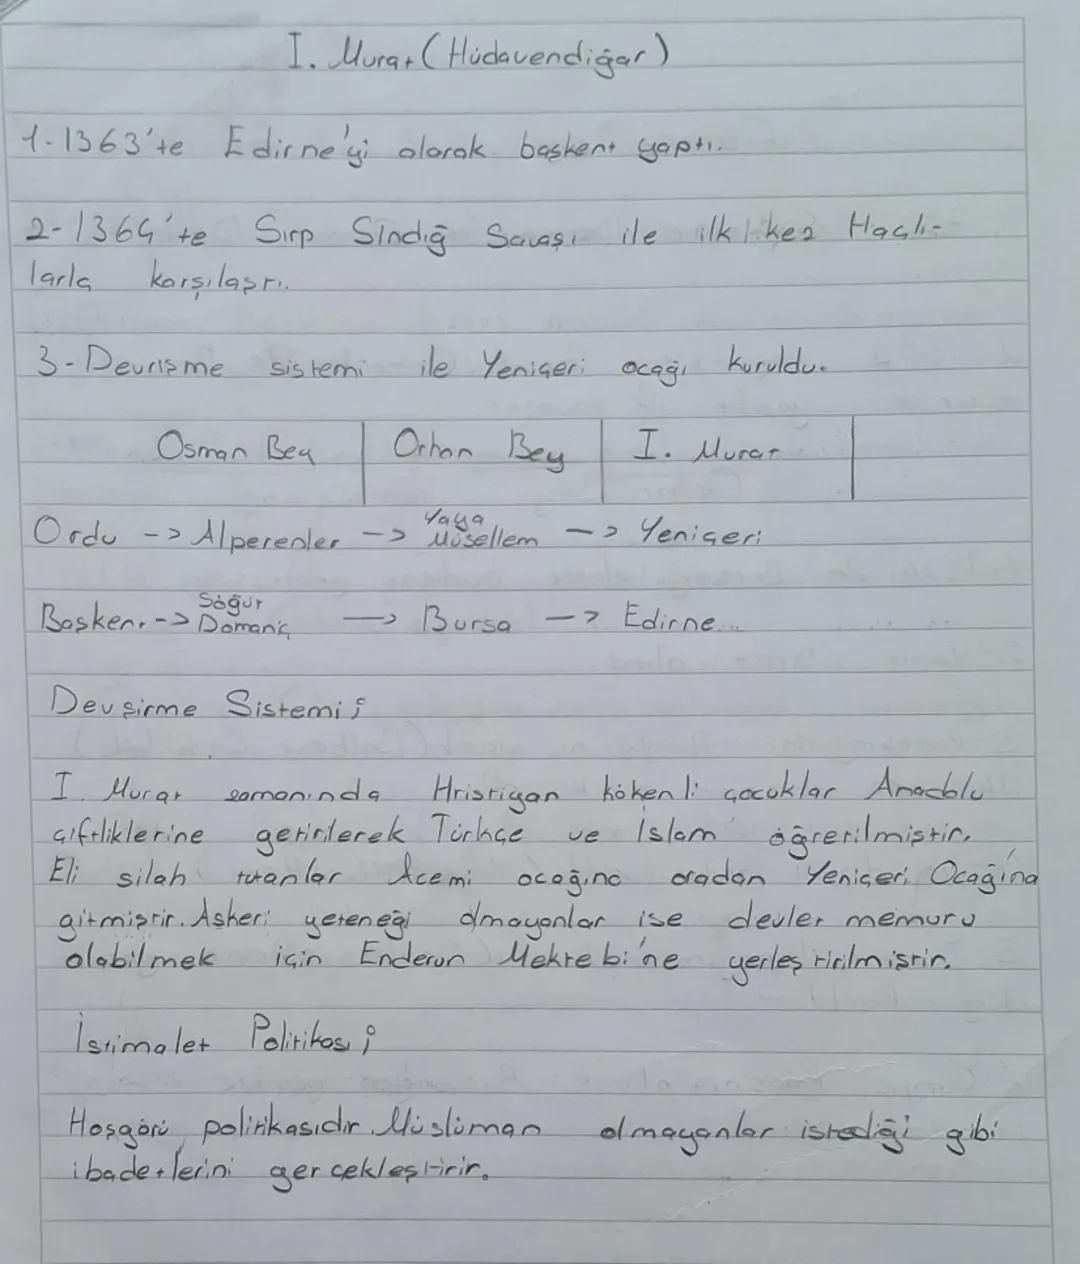 I. Murat (Hüdavendiğar)
1-1363'te Edirne'yi alarak başkent yaptı.
2-1364'te Sırp Sındığ Savaşı ile ilk kez Haçlı-
larla karşılaştı.
3-Devrişme sistemi ile Yeniçeri ocağı kuruldu.
Osman Bey Orhan Bey I. Murat
Ordu -> Alperenler -> Yaya Müsellem -> Yeniçeri
Başkent -> Söğüt Domaniç -> Bursa -> Edirne...
Devşirme Sistemi;
I. Murat zamanında Hristiyan kökenli çocuklar Anadolu
çiftliklerine getirilerek Türkçe ve İslam öğretilmiştir.
Eli silah tutanlar Acemi ocağına oradan Yeniçeri Ocağına
gitmiştir. Askeri yeteneği olmayanlar ise devlet memuru
olabilmek için Enderun Mektebi'ne yerleştirilmiştir.
İstimalet Politikası;
Hoşgörü politikasıdır. Müslüman olmayanlar istediği gibi
ibadetlerini gerçekleştirir.